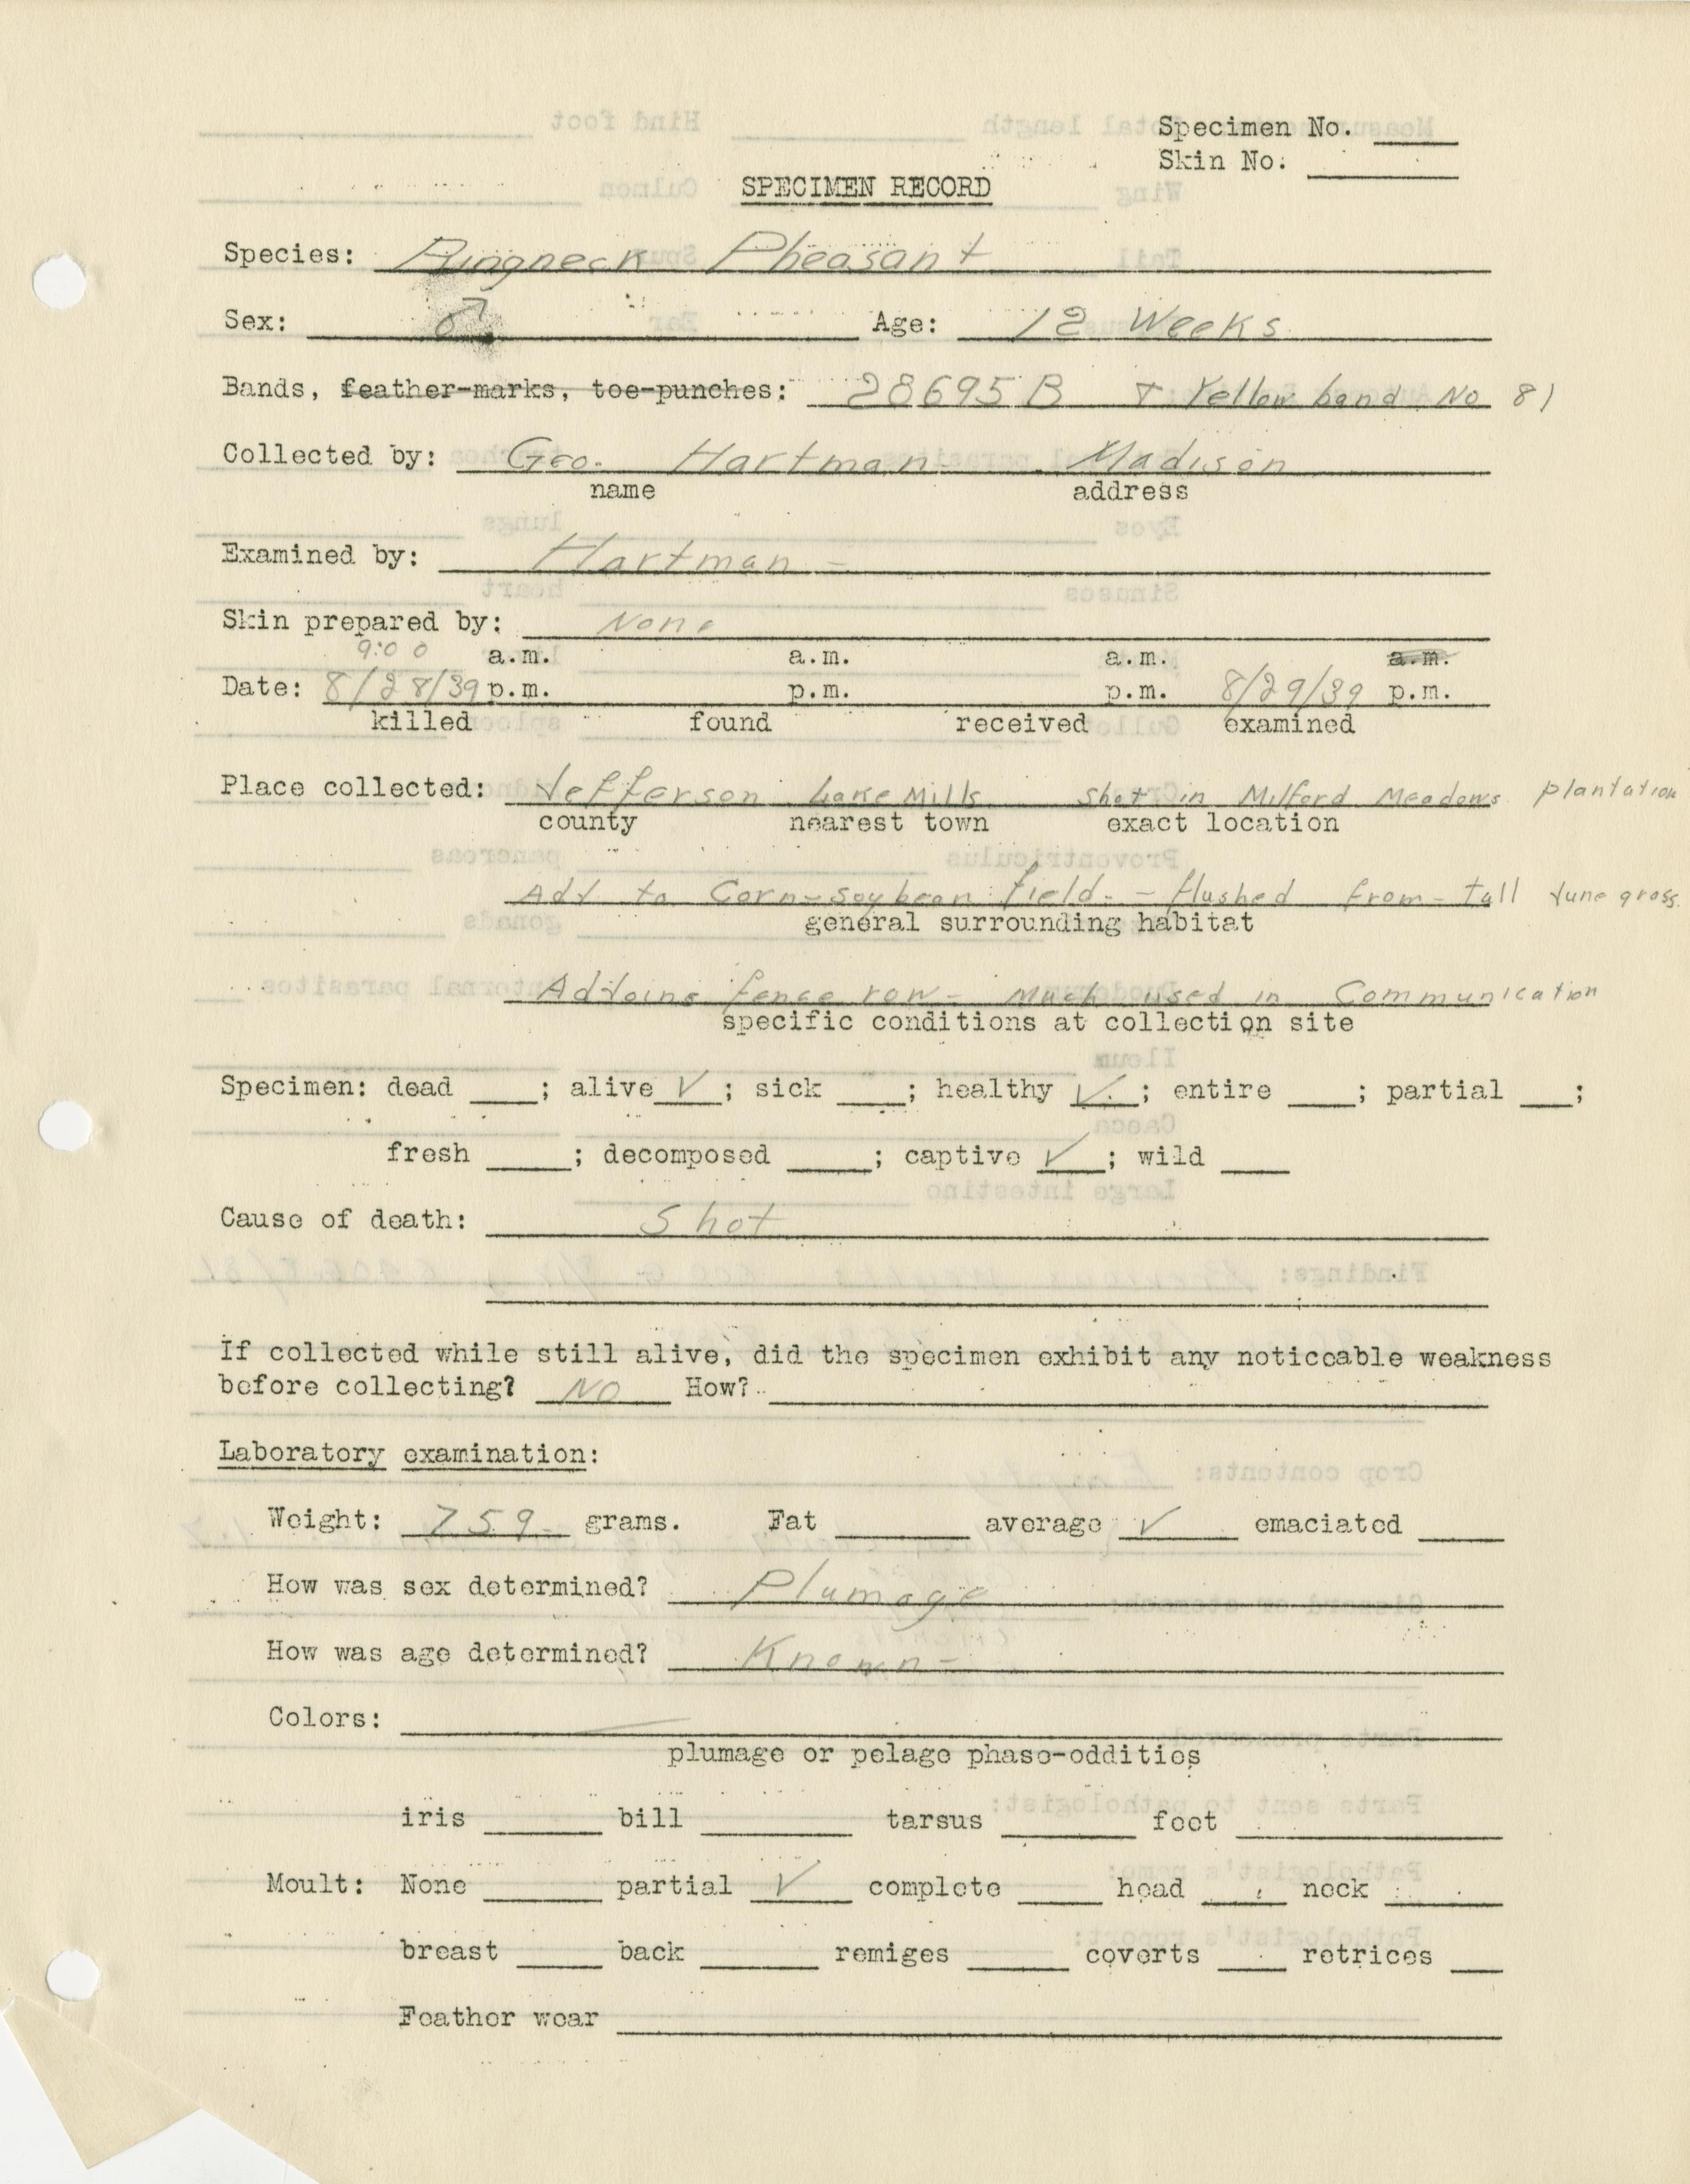 Specimen No. ____
Skin No. ____
SPECIMEN RECORD
Species: Ringneck Pheasant
Sex: ♂ Age: 12 Weeks
Bands, feather-marks, toe-punches: 28695 B & Yellow band No 81
Collected by: Geo. Hartman Madison
name address
Examined by: Hartman -
Skin prepared by: None
9:00 a.m. a.m. a.m. a.m.
Date: 8/28/39 p.m. p.m. p.m. 8/29/39 p.m.
killed found received examined
Place collected: Jefferson Lake Mills Shot in Milford Meadows plantation
county nearest town exact location
Adj to Corn-soybean field. - flushed from - tall June grass.
general surrounding habitat
Adjoins fence row - much used in Communication
specific conditions at collection site
Specimen: dead ____; alive √; sick ____; healthy √; entire ____; partial ___;
fresh ____; decomposed ____; captive √; wild ____
Cause of death: Shot
If collected while still alive, did the specimen exhibit any noticeable weakness
before collecting? NO How? ____
Laboratory examination:
Weight: 759 - grams. Fat ____ average √ emaciated ____
How was sex determined? Plumage
How was age determined? Known -
Colors: ____
plumage or pelage phase-oddities
iris ____ bill ____ tarsus ____ foot ____
Moult: None ____ partial √ complete ____ head ____ neck ____
breast ____ back ____ remiges ____ coverts ____ retrices ____
Feather wear ____